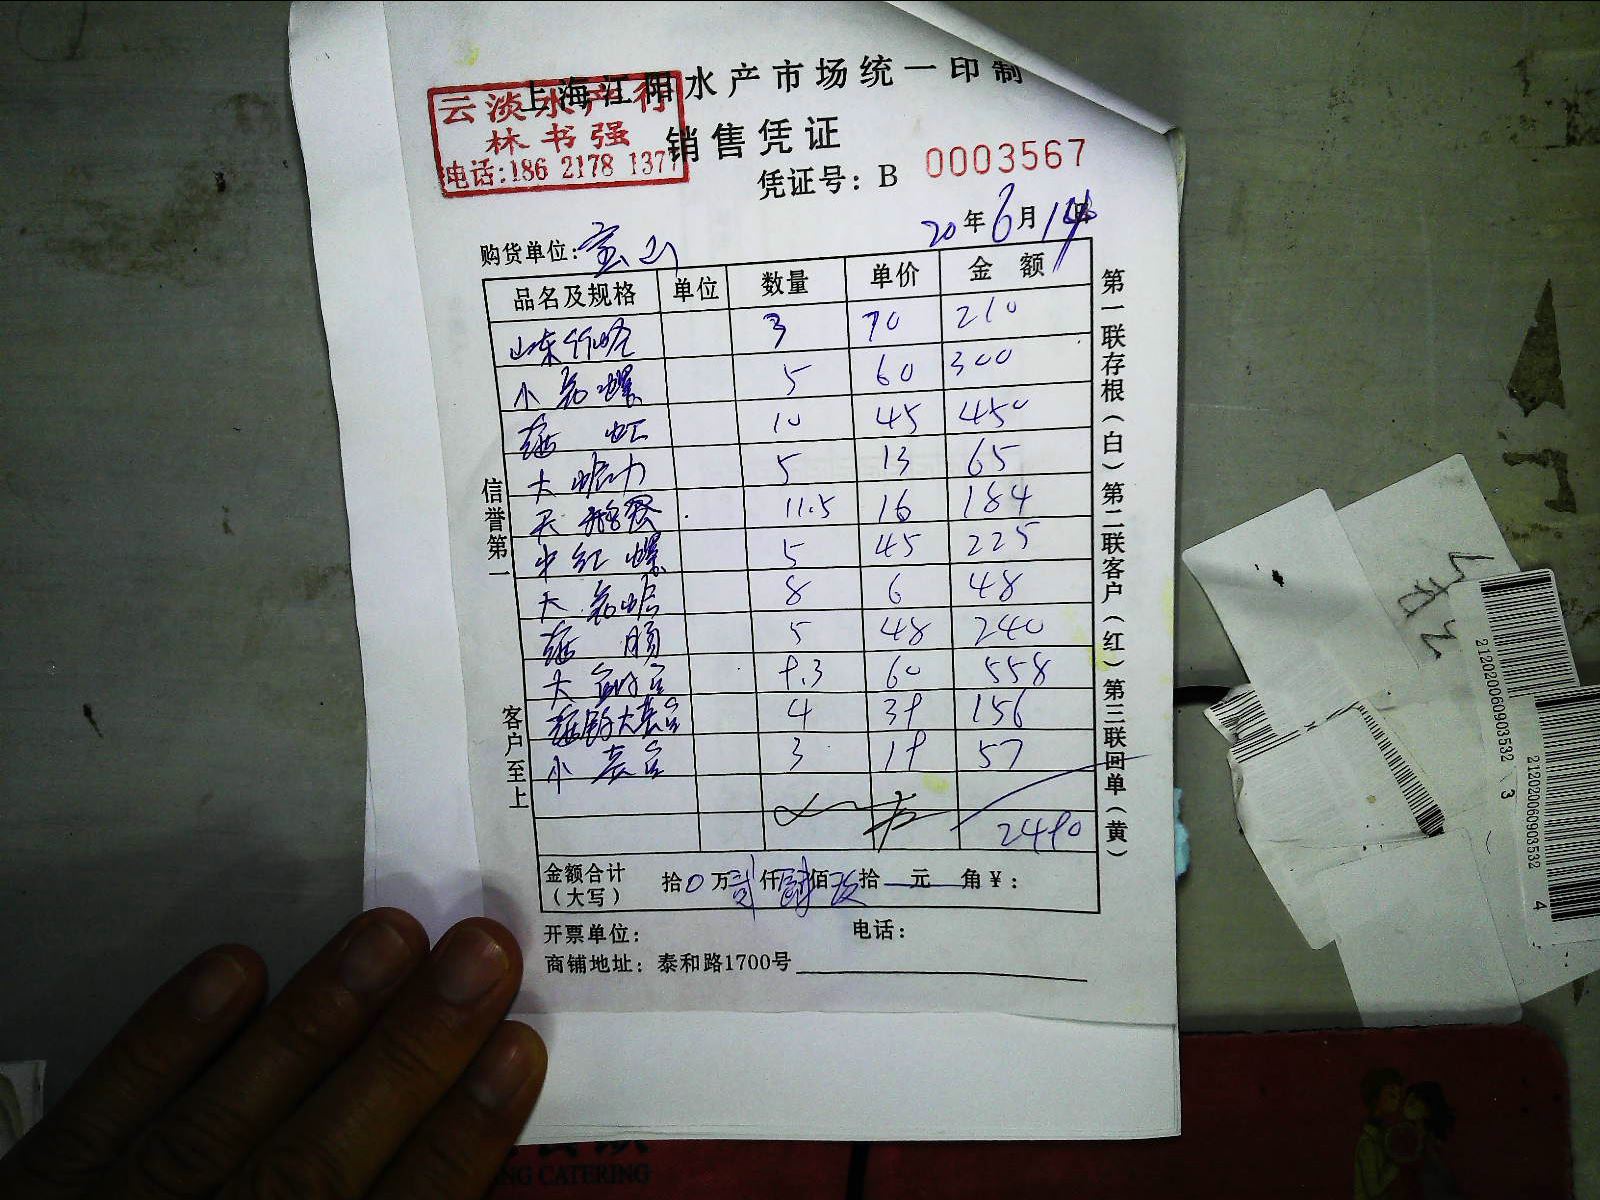 上海江阳水产市场统一印制
云淡水产行
林书强
电话:186 2178 1377
销售凭证
凭证号: B 0003567
20年6月14日
购货单位: 宝山
品名及规格 单位 数量 单价 金额
山东 3 70 210
小花螺 5 60 300
10 45 450
大 5 13 65
11.5 16 184
中红螺 5 45 225
大花 8 6 48
5 48 240
大 9.3 60 558
大 4 39 156
小 3 19 57
2490
金额合计 (大写) 拾0万贰仟肆佰玖拾 元 角¥:
开票单位: 电话:
商铺地址: 泰和路1700号
信誉第一
客户至上
第一联存根(白) 第二联客户(红) 第三联回单(黄)
212020060903532 3
212020060903532 4
NG CATERING